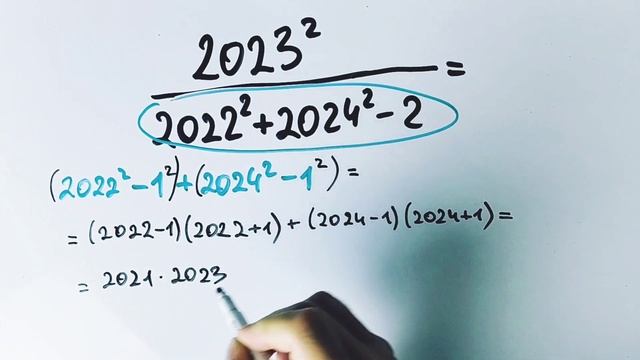 2023²
=
2022²+2024²-2
(2022²-1²)+(2024²-1²)=
=(2022-1)(2022+1)+(2024-1)(2024+1)=
=2021·2023